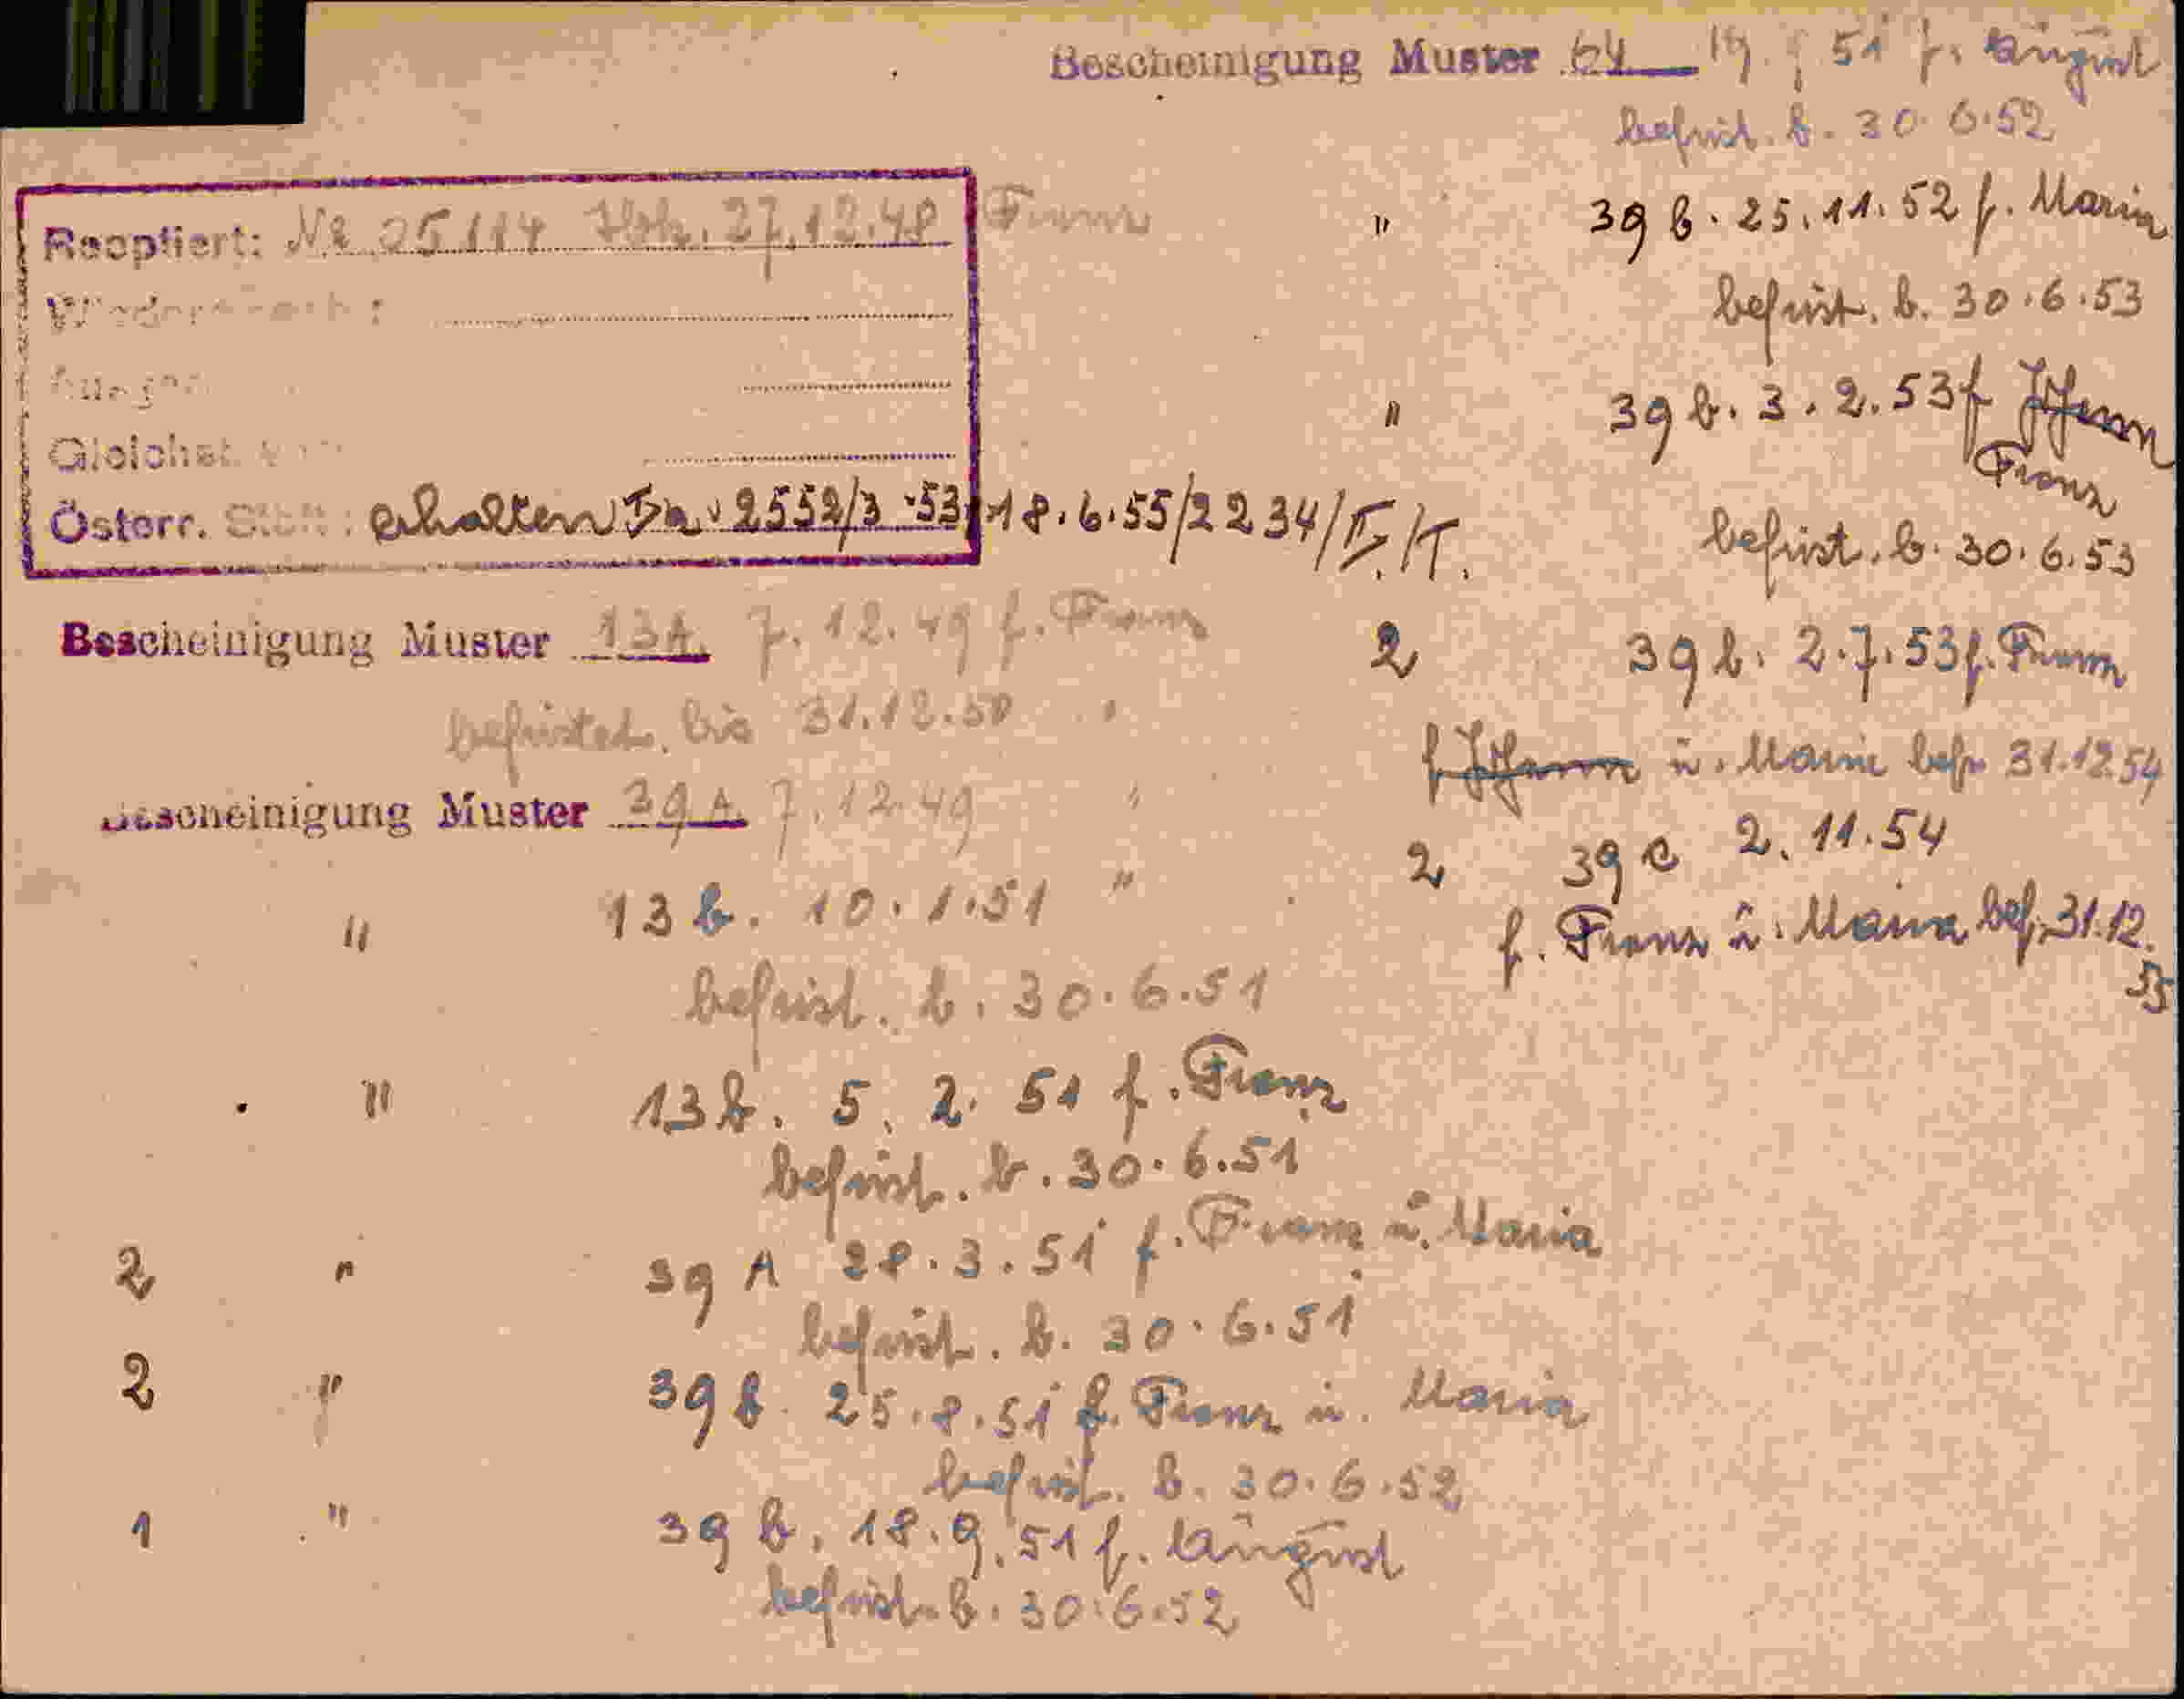 Bescheinigung Muster 64 19. 51 f. August
befrist. b. 30.6.52
Reoptiert: Nr 05114 27.12.48 Franz
Österr. erhalten Ia. 2552/3-53, 18.6.55/2234/
Bescheinigung Muster 13A. 7.12.49 f. Franz
befristet. bis 31.12.50 "
Bescheinigung Muster 39A. 7.12.49 "
" 13 b. 10.1.51 "
befrist. b. 30.6.51
" 13 b. 5.2.51 f. Franz
befrist. b. 30.6.51
2 " 39 A 28.3.51 f. Franz u. Maria
befrist. b. 30.6.51
2 " 39 b. 25.8.51 f. Franz u. Maria
befrist. b. 30.6.52
1 " 39 b. 18.9.51 f. August
befrist. b. 30.6.52
" 39 b. 25.11.52 f. Maria
befrist. b. 30.6.53
" 39 b. 3.2.53 f
Franz
befrist. b. 30.6.53
2 39 b. 2.7.53 f. Franz
f u. Maria bef. 31.12.54
2 39 c 2.11.54
f. Franz u. Maria bef. 31.12.
55